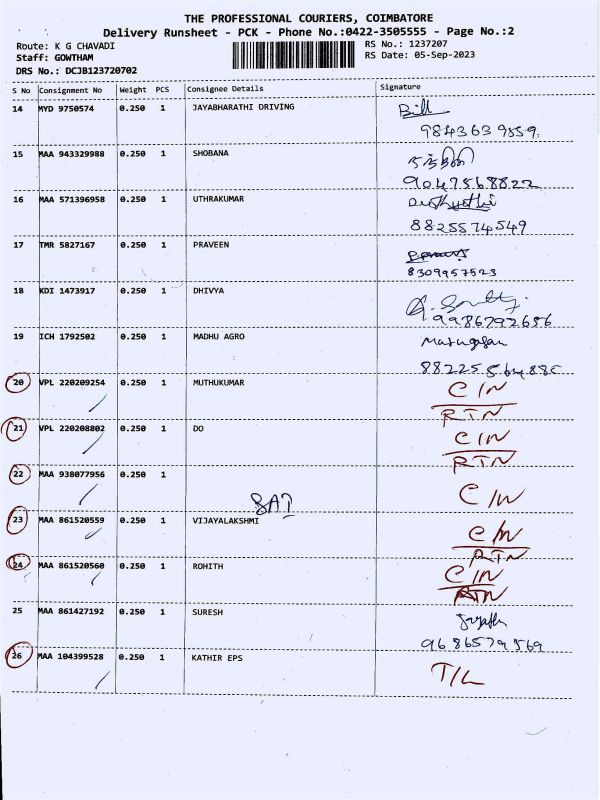 THE PROFESSIONAL COURIERS, COIMBATORE
Delivery Runsheet - PCK - Phone No.:0422-3505555 - Page No.:2
Route: K G CHAVADI
RS No.: 1237207
Staff: GOWTHAM
RS Date: 05-Sep-2023
DRS No.: DCJB123720702
S No Consignment No Weight PCS Consignee Details Signature
14 MYD 9750574 0.250 1 JAYABHARATHI DRIVING Bill
9843639859.
15 MAA 943329988 0.250 1 SHOBANA
9047568822
16 MAA 571396958 0.250 1 UTHRAKUMAR
8825574549
17 TMR 5827167 0.250 1 PRAVEEN
8309957523
18 KDI 1473917 0.250 1 DHIVYA
9986792656
19 ICH 1792502 0.250 1 MADHU AGRO Murugesan
20 VPL 220209254 0.250 1 MUTHUKUMAR C/N
RTN
21 VPL 220208802 0.250 1 DO C/N
RTN
22 MAA 938077956 0.250 1 C/N
23 MAA 861520559 0.250 1 VIJAYALAKSHMI C/N
RTN
24 MAA 861520560 0.250 1 ROHITH C/N
RTN
25 MAA 861427192 0.250 1 SURESH
9686579569
26 MAA 104399528 0.250 1 KATHIR EPS T/L